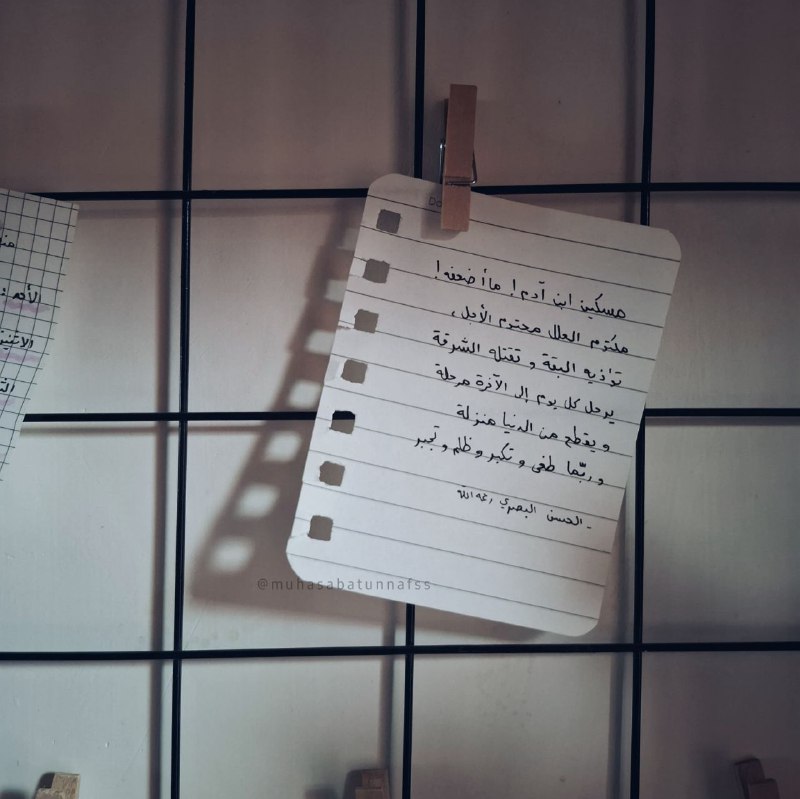 مسكين ابن آدم! ما أضعفه!
مكتوم العلل محتوم الأجل،
تؤذيه البقة و تقتله الشرقة
يرحل كل يوم إلى الآخرة مرحلة
و يقطع من الدنيا منزلة
و ربّما طغى و تكبر و ظلم و تجبر
- الحسن البصري رحمه الله
@muhasabatunnafss